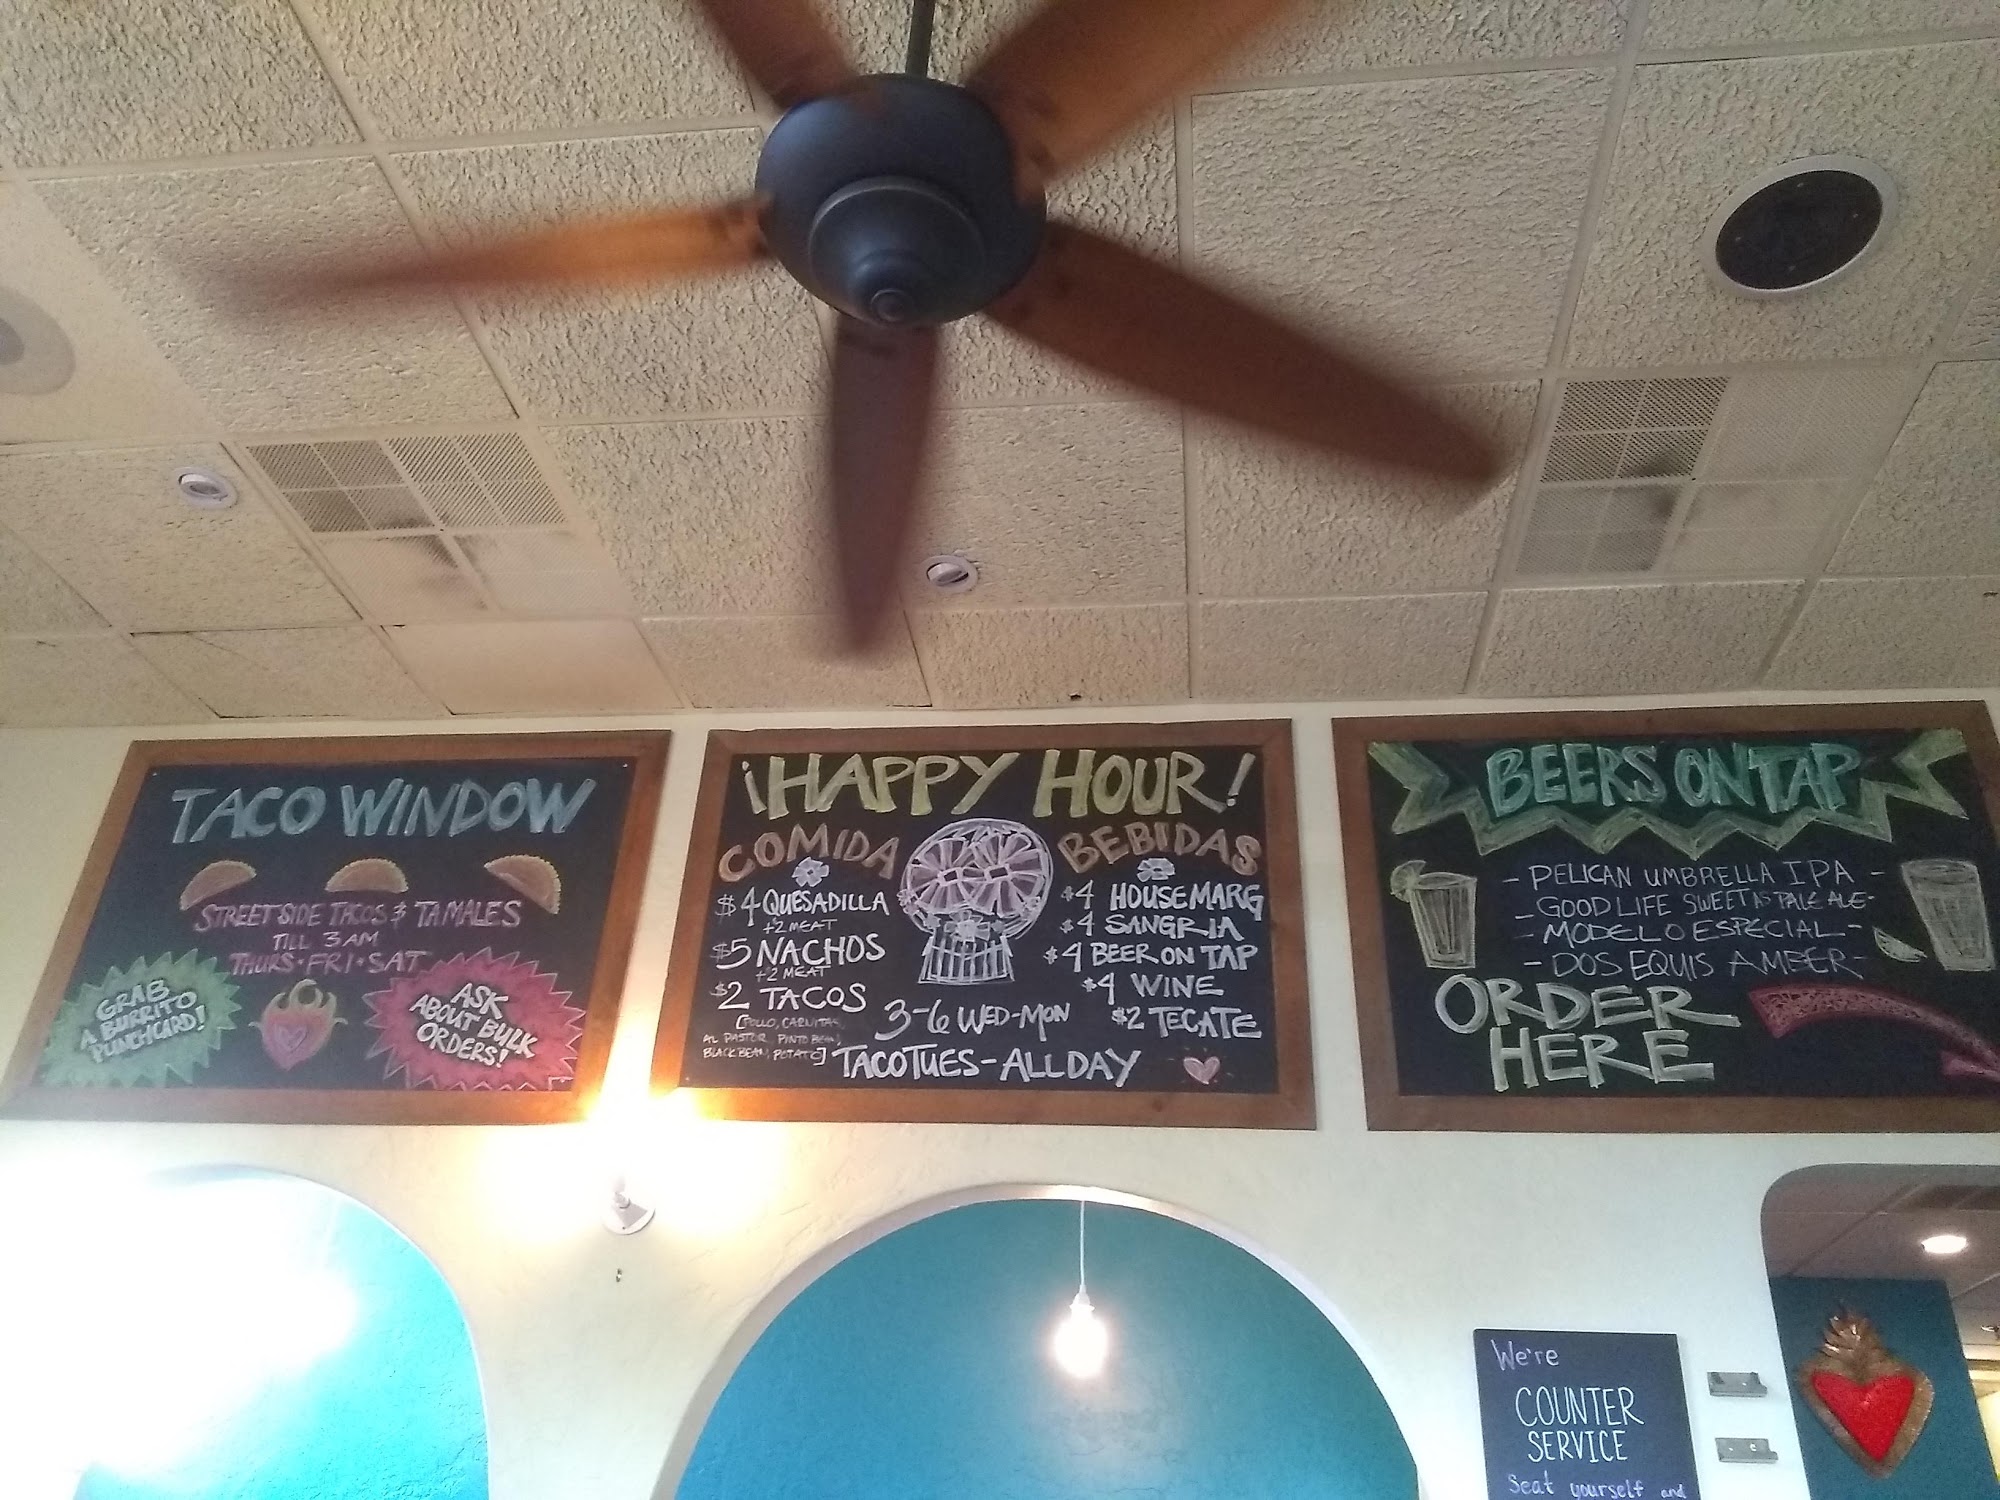 TACO WINDOW
STREETSIDE TACOS & TAMALES
TILL 3 AM
THURS • FRI • SAT
GRAB
A BURRITO
PUNCHCARD!
ASK
ABOUT BULK
ORDERS!
¡HAPPY HOUR!
COMIDA
$4 QUESADILLA
+2 MEAT
$5 NACHOS
+2 MEAT
$2 TACOS
[POLLO, CARNITAS,
AL PASTOR, PINTO BEAN,
BLACK BEAN, POTATO]
BEBIDAS
$4 HOUSE MARG
$4 SANGRIA
$4 BEER ON TAP
$4 WINE
$2 TECATE
3-6 WED-MON
TACO TUES - ALL DAY
BEERS ON TAP
- PELICAN UMBRELLA IPA -
- GOOD LIFE SWEET AS PALE ALE -
- MODELO ESPECIAL -
- DOS EQUIS AMBER -
ORDER
HERE
We're
COUNTER
SERVICE
Seat yourself and